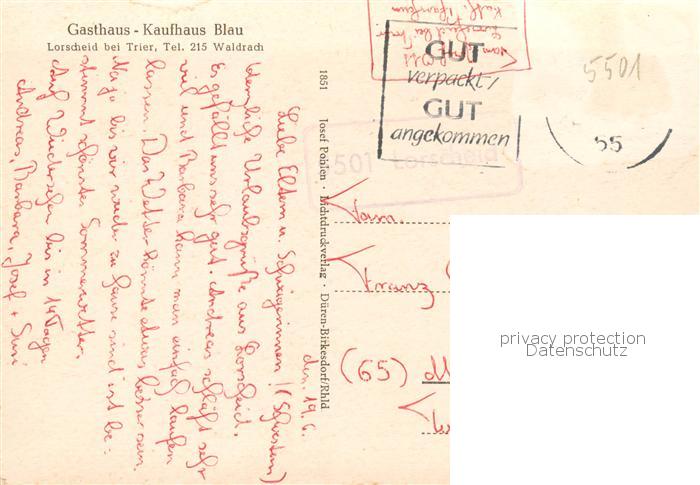 Gasthaus - Kaufhaus Blau
Lorscheid bei Trier, Tel. 215 Waldrach
den 19.6.
Liebe Eltern u. Schwiegerinnen! (Schwestern)
Herzliche Urlaubsgrüße aus Lorscheid.
Es gefällt uns sehr gut. Andreas schläft sehr
viel und Barbara kann man einfach laufen
lassen. Das Wetter könnte etwas besser sein.
Na ja bis wir wieder zu Hause sind ist be-
stimmt schönstes Sommerwetter.
Auf Wiedersehen bis in 14 Tagen
Andreas, Barbara, Josef + Susi
1851 Josef Pohlen · Lichtdruckverlag · Düren-Birkesdorf/Rhld
GUT
verpackt/
GUT
angekommen
5501
55
5501 Lorscheid
Fam.
Franz
(65)
privacy protection
Datenschutz